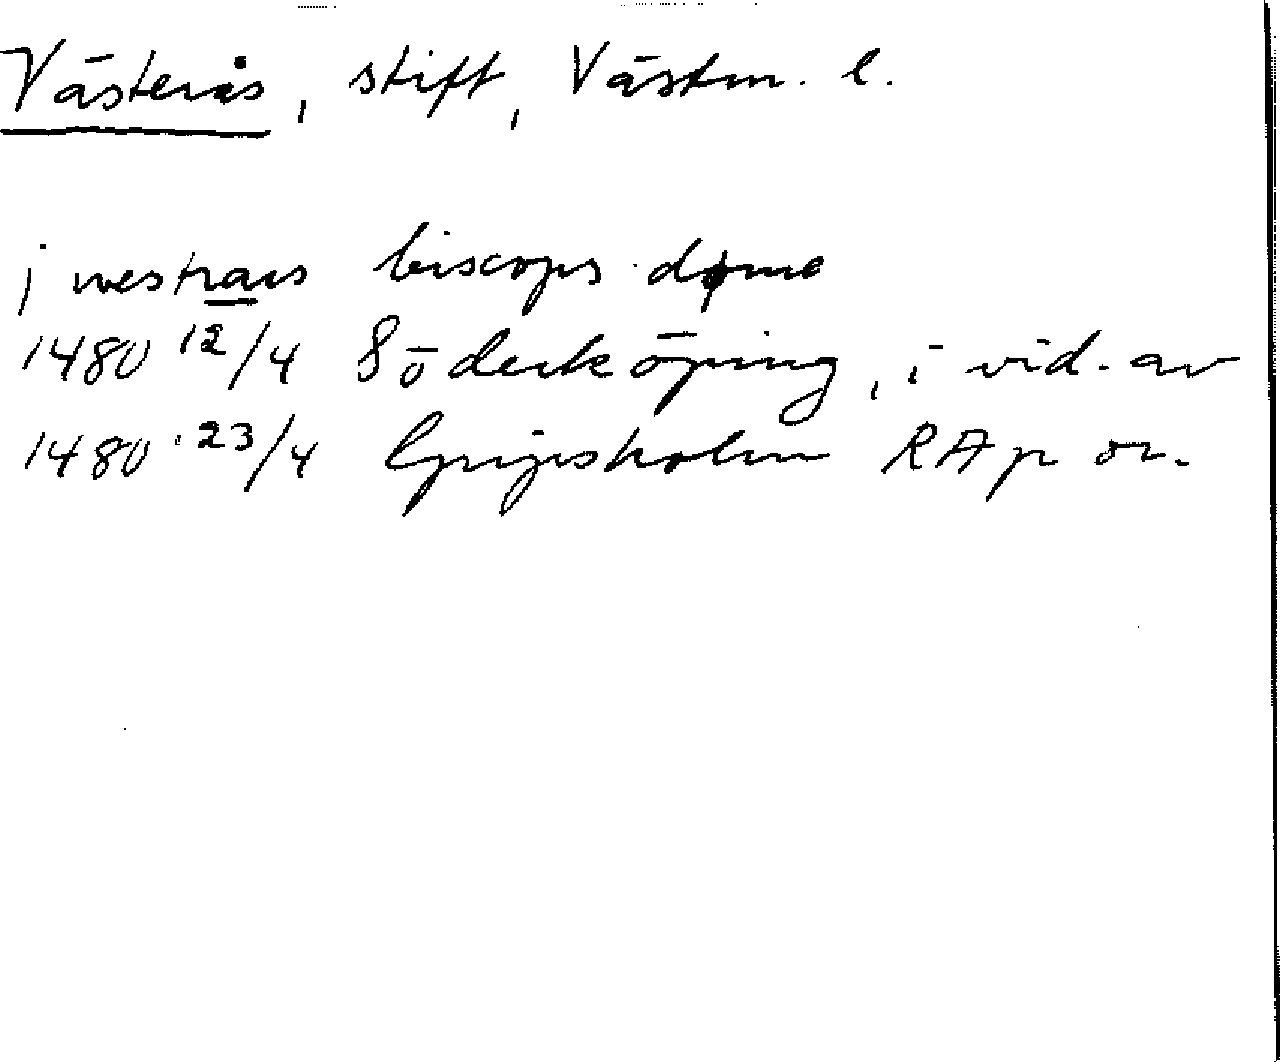 Västerås, stift, Västm. l.
j westraas biscops døme
1480 12/4 Söderköping, i vid. av
1480 23/4 Gripsholm RAp or.